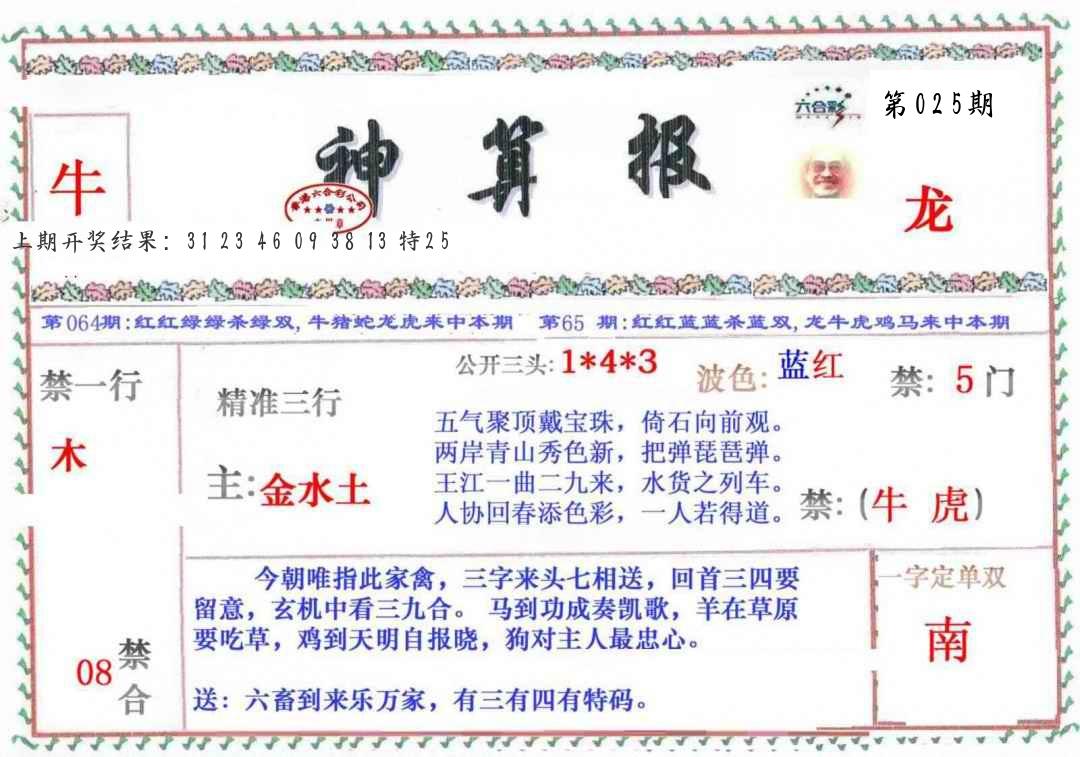 第025期
六合彩
神算报
牛
龙
香港六合彩公司
上期开奖结果：31 23 46 09 38 13 特25
第064期:红红绿绿杀绿双,牛猪蛇龙虎来中本期 第65 期:红红蓝蓝杀蓝双,龙牛虎鸡马来中本期
禁一行
木
精准三行
主:金水土
公开三头:1*4*3
波色:蓝红
禁: 5门
五气聚顶戴宝珠，倚石向前观。
两岸青山秀色新，把弹琵琶弹。
王江一曲二九来，水货之列车。
人协回春添色彩，一人若得道。
禁:(牛 虎)
08
禁合
今朝唯指此家禽，三字来头七相送，回首三四要
留意，玄机中看三九合。 马到功成奏凯歌，羊在草原
要吃草，鸡到天明自报晓，狗对主人最忠心。
送：六畜到来乐万家，有三有四有特码。
一字定单双
南